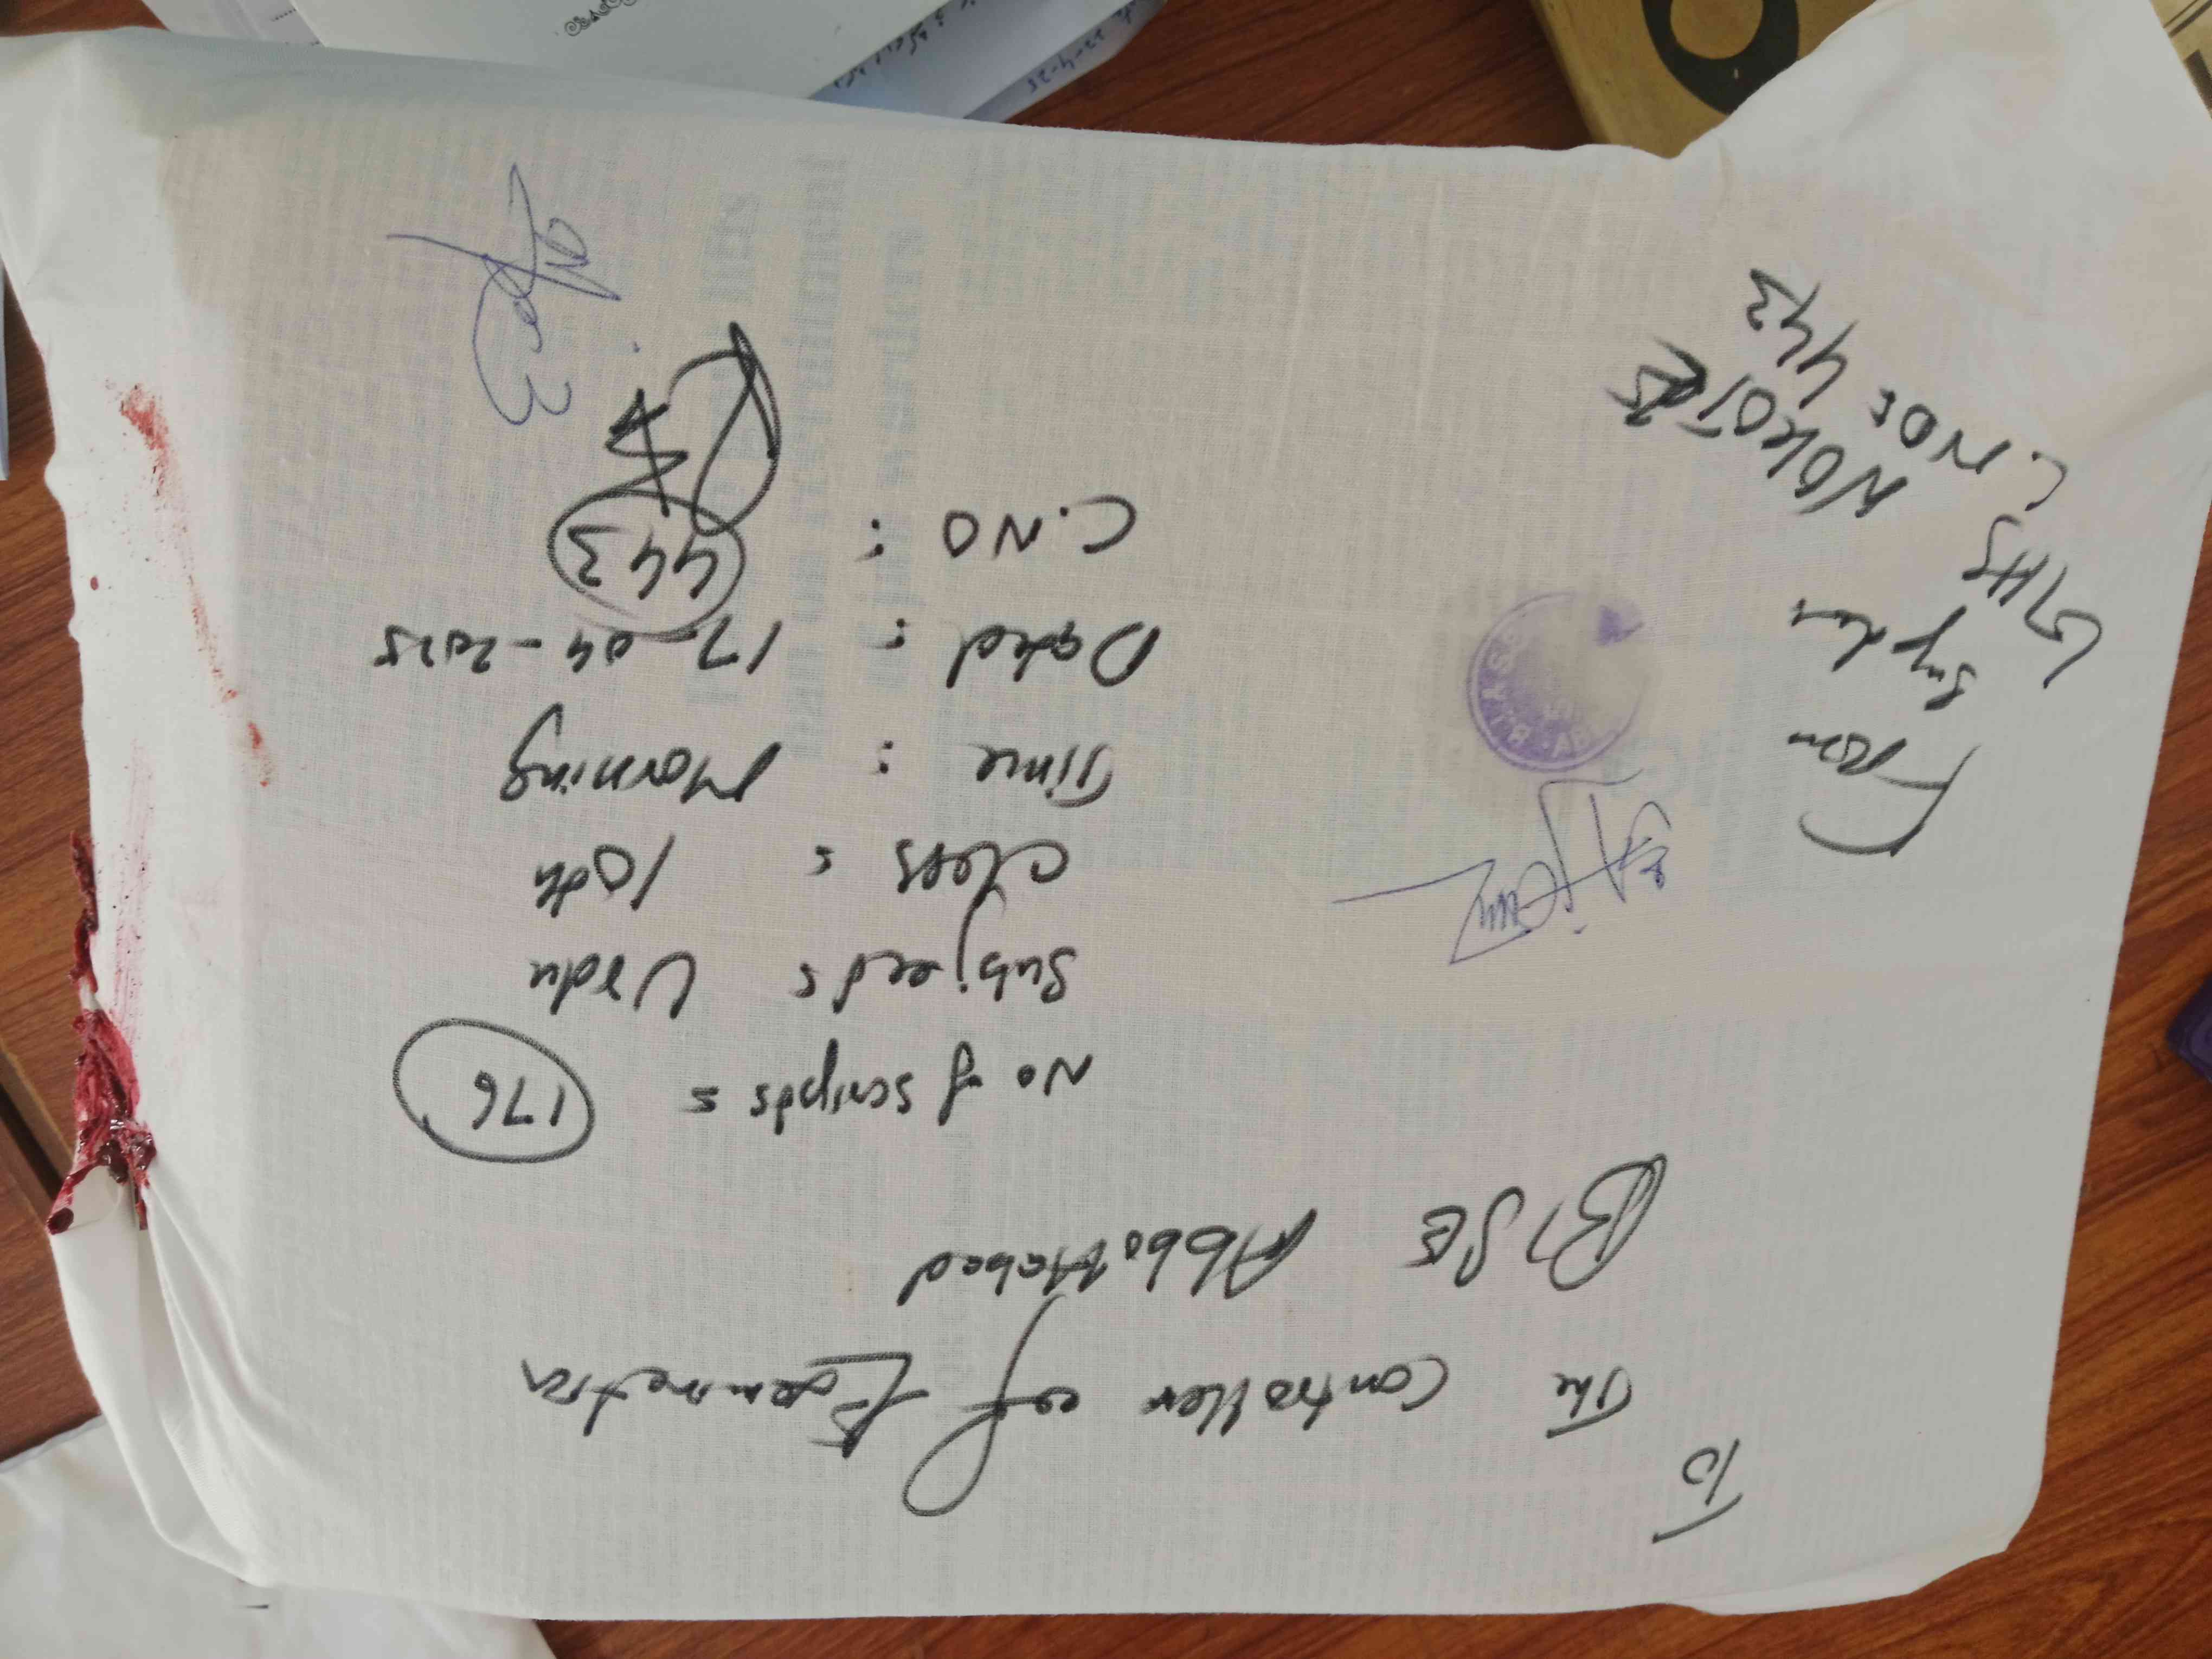 To
The Controller of Examination
BISE Abbottabad
No of scripts = 176
Subject = Urdu
Class = 10th
Time : Morning
Dated : 17-04-2025
C.NO : 443
From
GHS
C.NO: 443